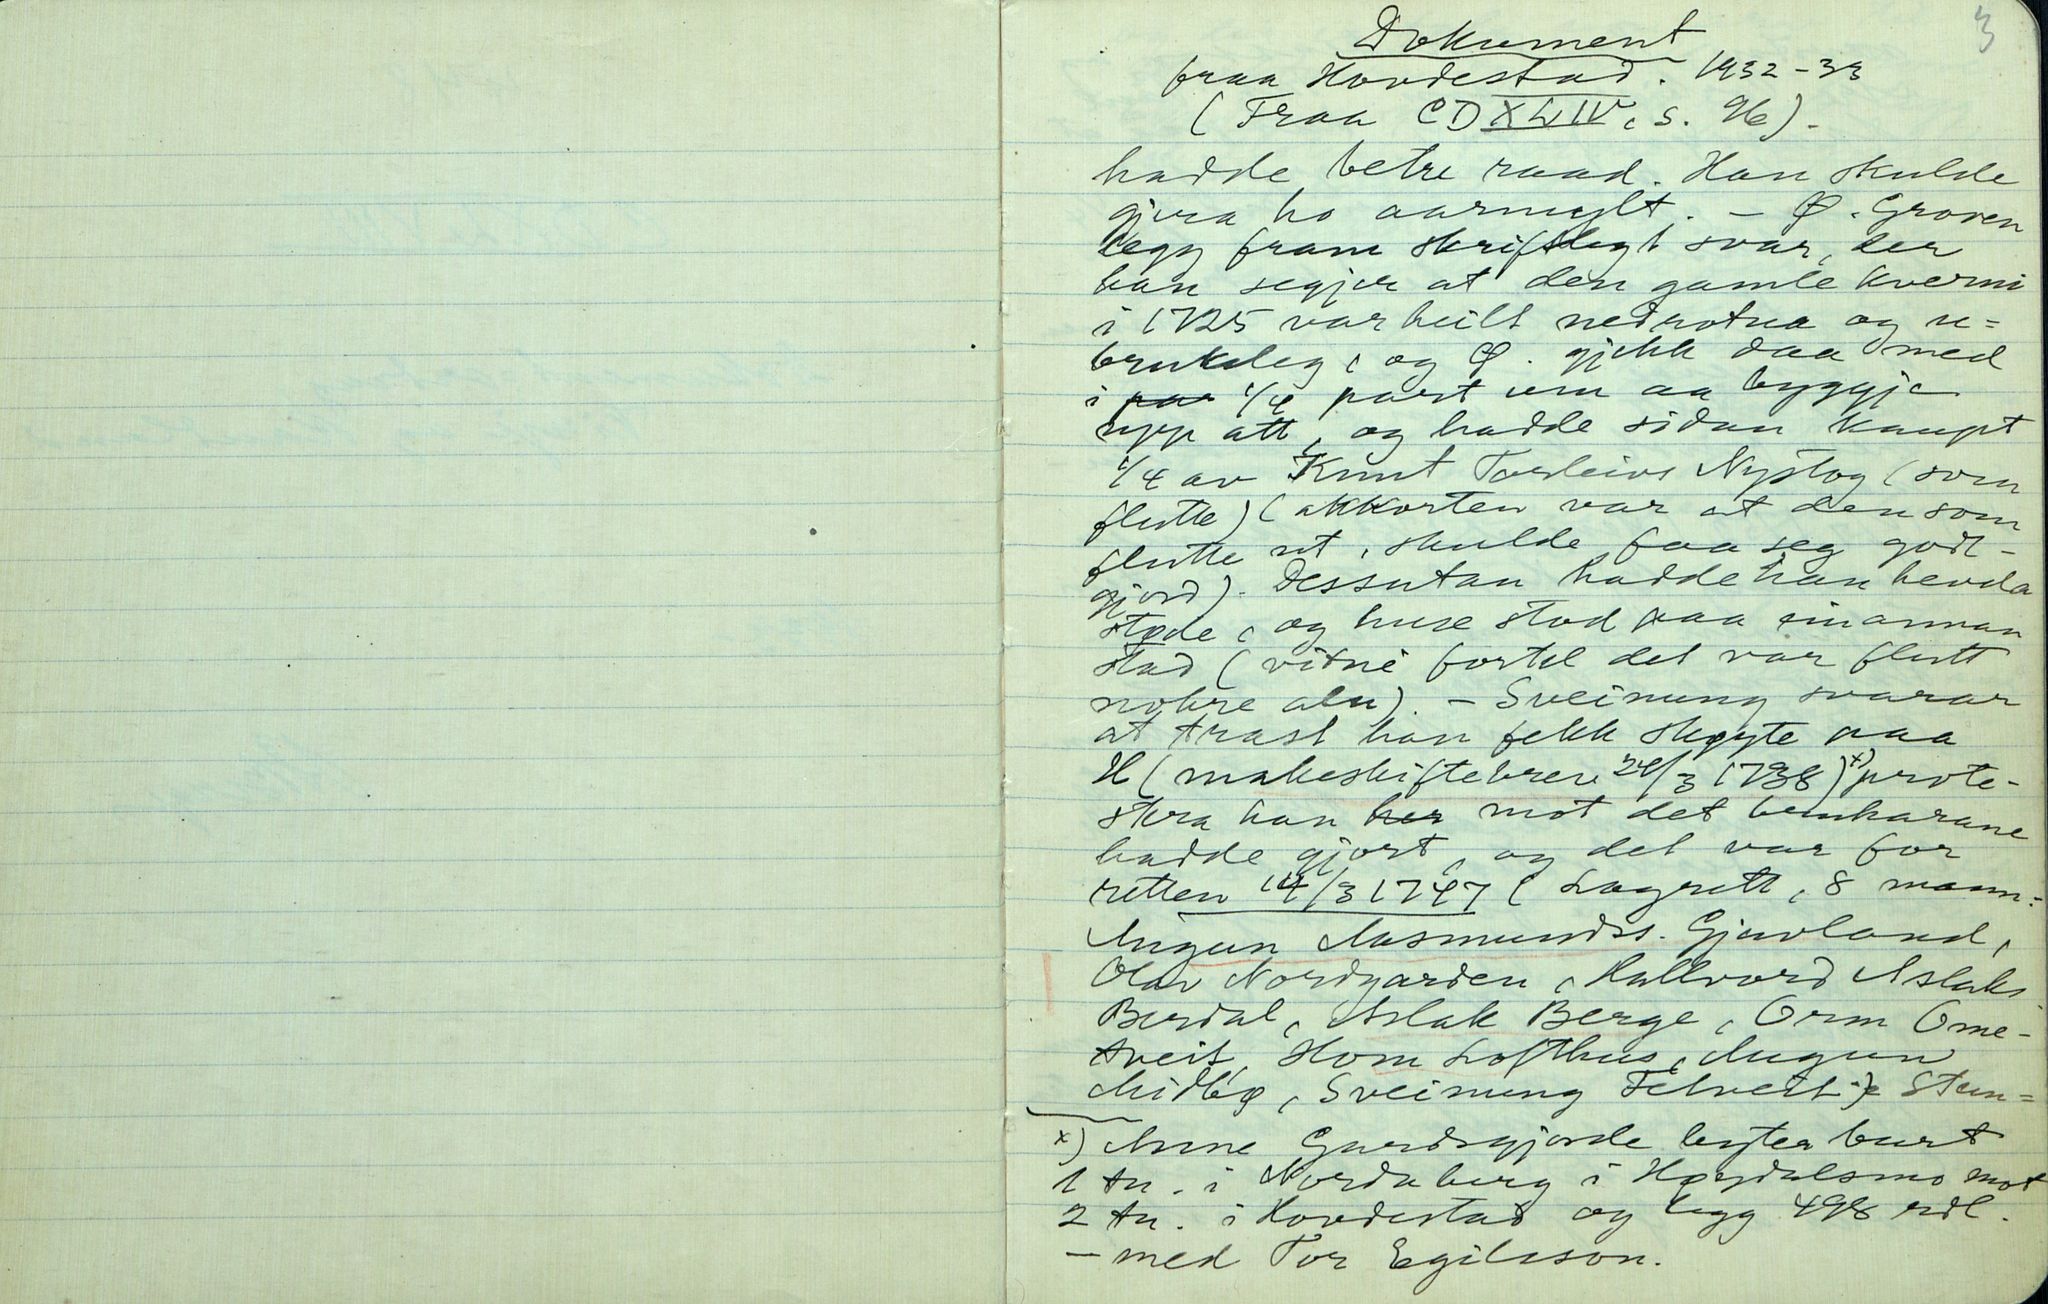 3
Dokument
fraa Hovdestad. 1932-33
(Fraa CDXLIV, s. 96).
hadde betre raad. Han skulde
gjera ho aarmylt. - Ø. Groven
legg fram skriftlegt svar, der
han segjer at den gamle kverni
i 1725 var heilt nedrotna og u=
brukeleg, og Ø. gjekk daa med
i 1/4 part um aa byggje
upp att, og hadde sidan kaupt
1/4 av Knut Torleivs Nystog (som
flutte) (akkorten var at den som
flutte ut, skulde faa seg godt-
gjord). Dessutan hadde han hevda
støde, og huse stod paa ein annan
stad (vitne fortel det var flutt
nokre aln). - Sveinung svarar
at trast han fekk skøyte paa
H (makeskiftebrev 24/3 1738)x) prote-
stera han mot det brukarane
hadde gjort, og det var for
retten 14/3 1747 (Lagrett, 8 mann:
Aasmundss. Gjuvland,
Olav Nordgarden, Hallvord Aslaks.
Berdal, Aslak Berge, Orm Ome-
tveit, Hom Lofthus,
Midbø, Sveinung Felveit). Stem=
x) Anne Gardsgjorde byter burt
1 tn. i Nordaberg i Høydalsmo mot
2 tn. i Hovdestad og legg 498 rdl.
- med Tor Egilsson.